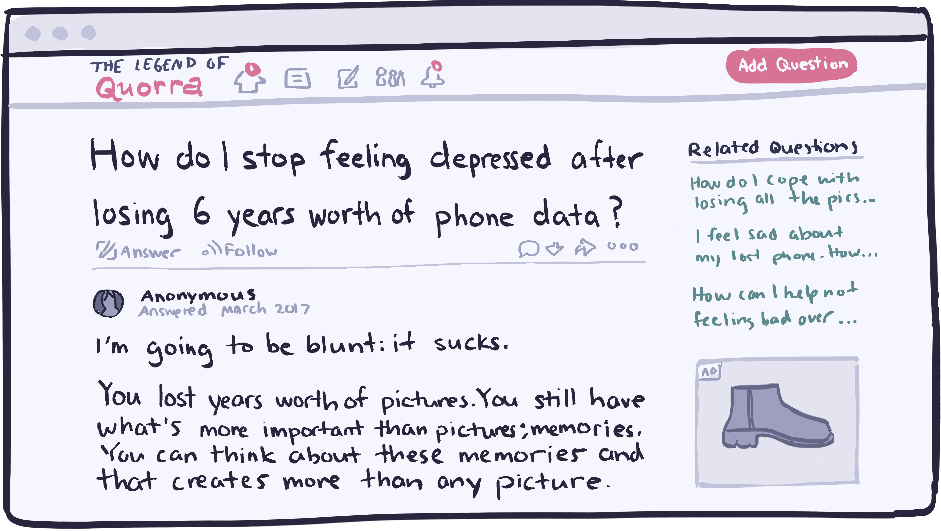 THE LEGEND OF
Quorra
Add Question
How do I stop feeling depressed after
losing 6 years worth of phone data?
Answer
Follow
Anonymous
Answered March 2017
I'm going to be blunt: it sucks.
You lost years worth of pictures. You still have
what's more important than pictures; memories.
You can think about these memories and
that creates more than any picture.
Related Questions
How do I cope with
losing all the pics...
I feel sad about
my lost phone. How...
How can I help not
feeling bad over ...
AD